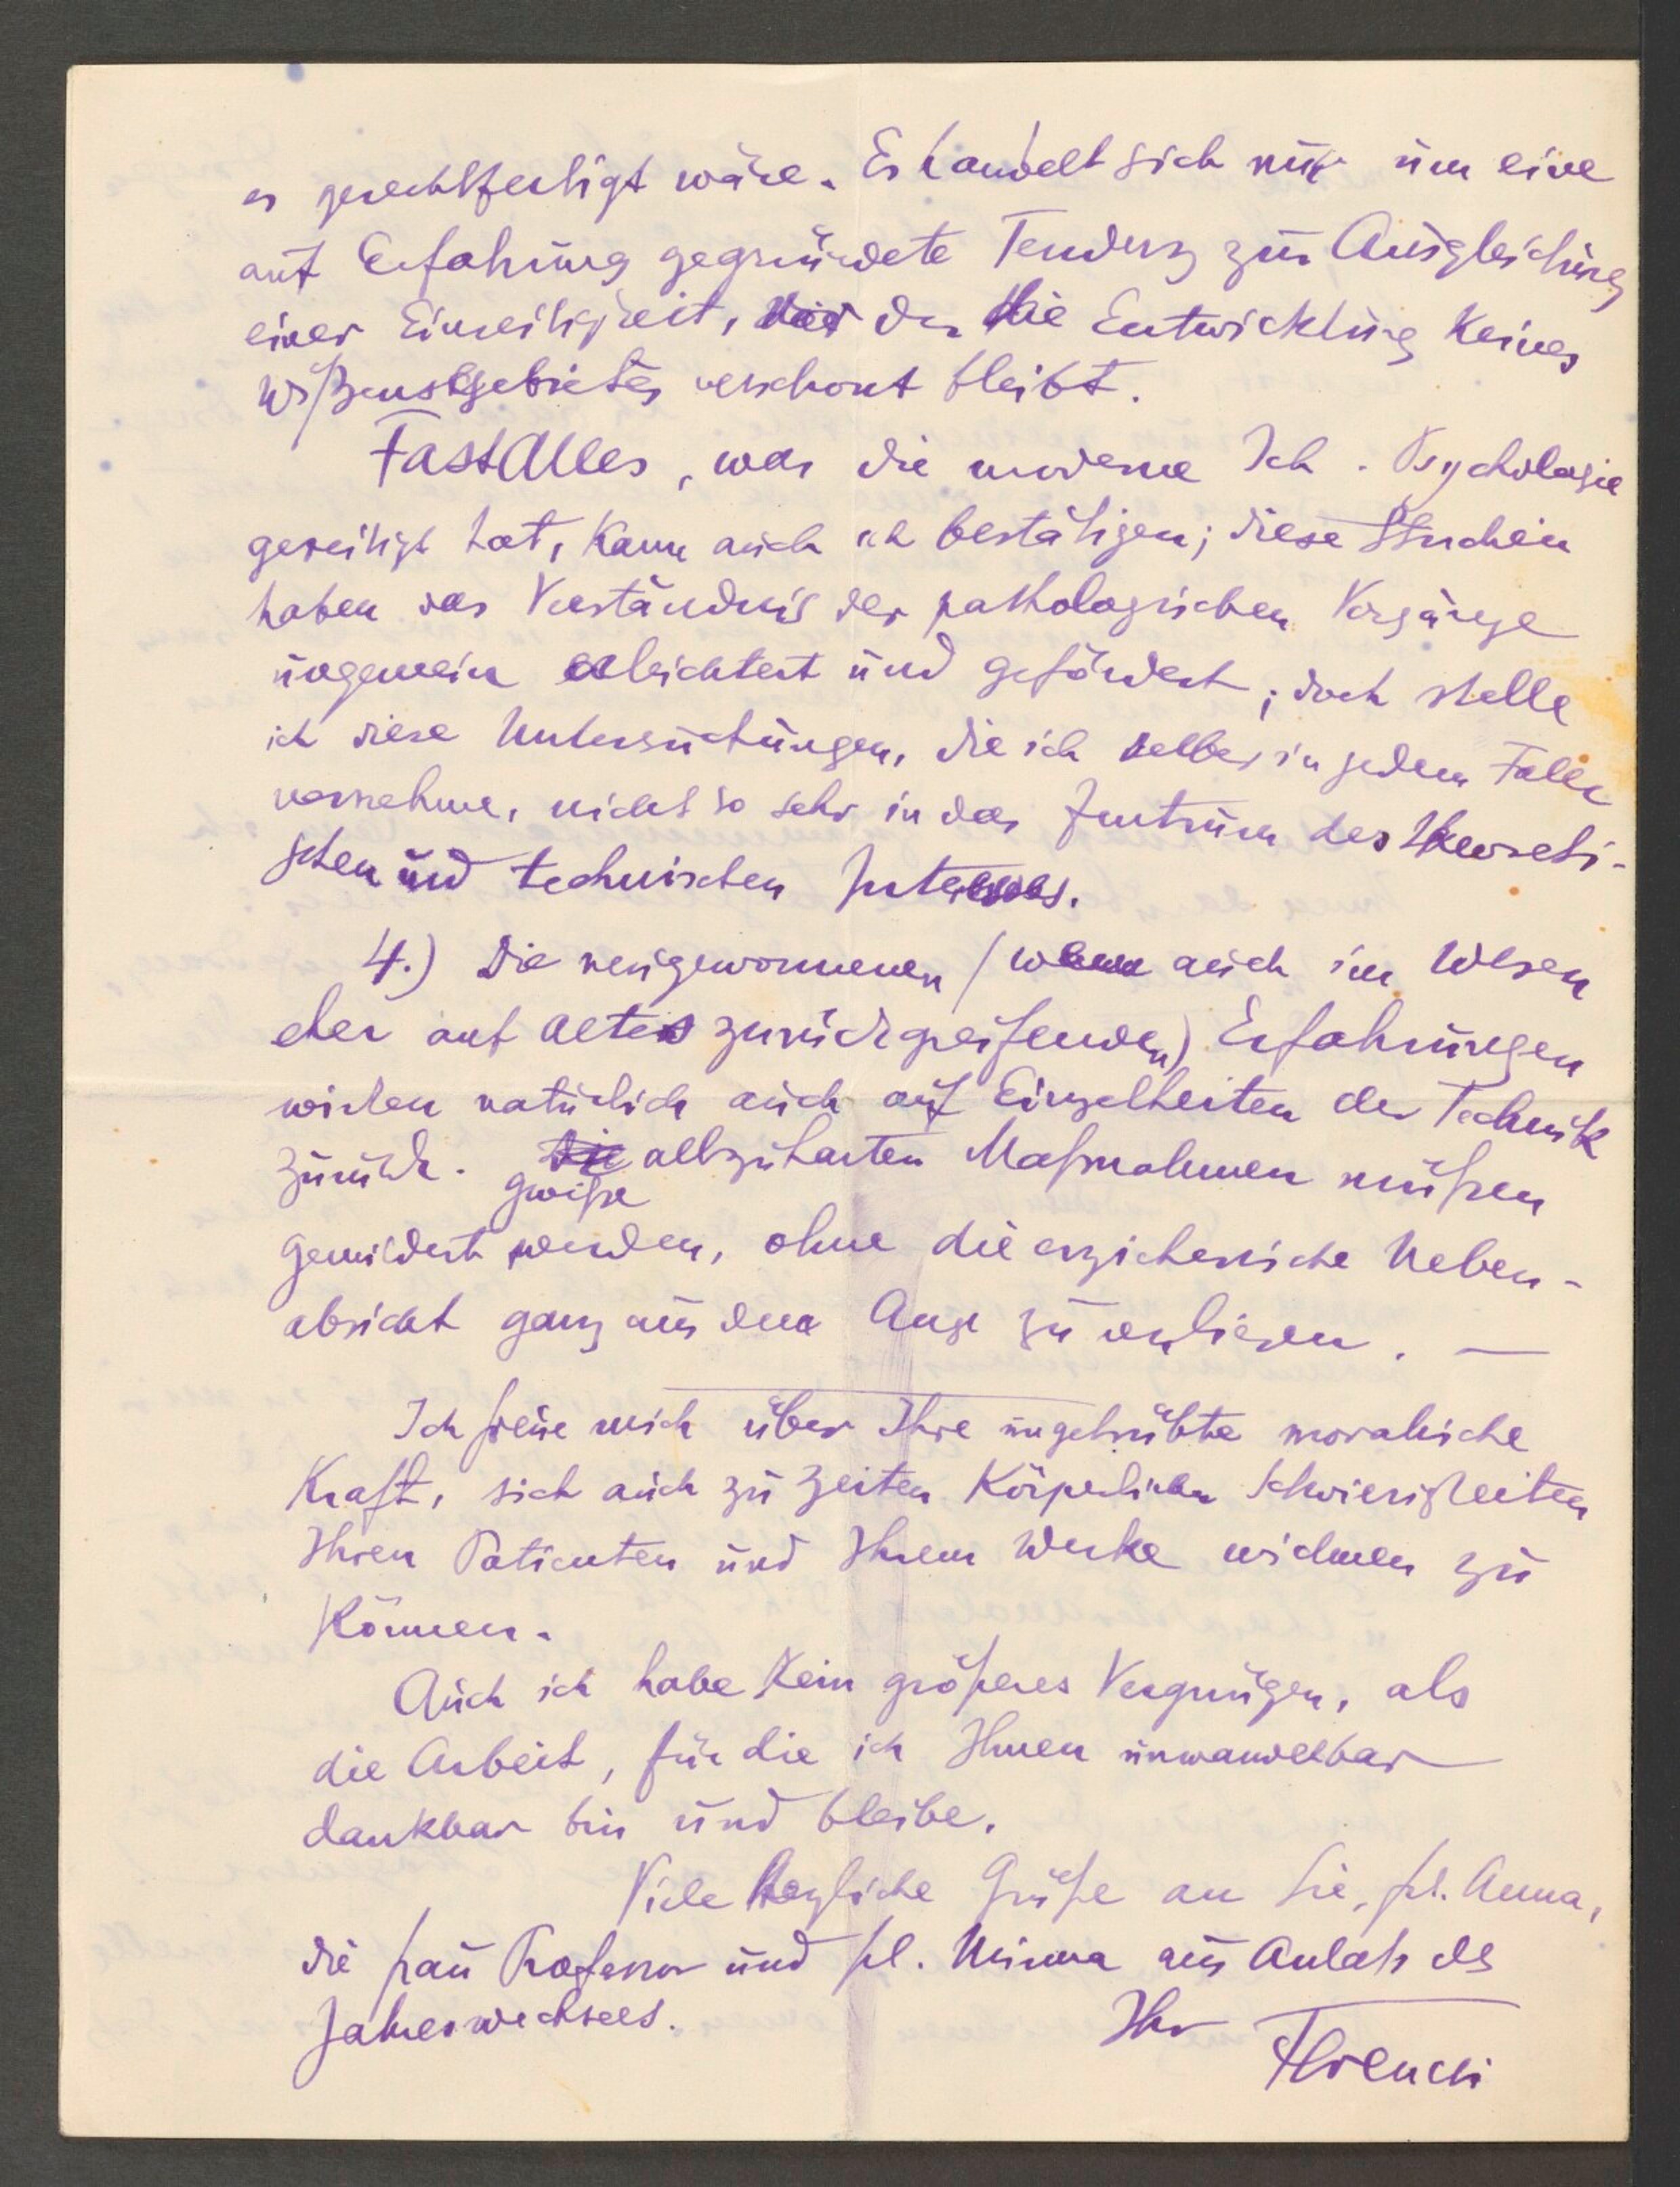 es gerechtfertigt wäre. Es handelt sich nur um eine
auf Erfahrung gegründete Tendenz zur Ausgleichung
einer Einseitigkeit, von der die Entwicklung keines
Wißensgebietes verschont bleibt.
Fast Alles, was die moderne Ich-Psychologie
gezeitigt hat, kann auch ich bestätigen; diese Studien
haben das Verständnis der pathologischen Vorgänge
ungemein erleichtert und gefördert; doch stelle
ich diese Untersuchungen, die ich selber in jedem Falle
vornehme, nicht so sehr in das Zentrum des theoreti-
schen und technischen Interesses.
4.) Die neugewonnenen (wenn auch im Wesen
eher auf altes zurückgreifenden) Erfahrungen
wirken natürlich auch auf Einzelheiten der Technik
zurück. Die allzuharten Maßnahmen müßen
gewiße
gemildert werden, ohne die erzieherische Neben-
absicht ganz aus dem Auge zu verlieren. —
Ich freue mich über Ihre ungetrübte moralische
Kraft, sich auch zu Zeiten körperlicher Schwierigkeiten
Ihren Patienten und Ihrem Werke widmen zu
können.
Auch ich habe kein größeres Vergnügen, als
die Arbeit, für die ich Ihnen unwandelbar
dankbar bin und bleibe.
Viele herzliche Grüße an Sie, Frl. Anna,
die Frau Professor und Frl. Minna aus Anlaß des
Jahreswechsels.
Ihr
Ferenczi